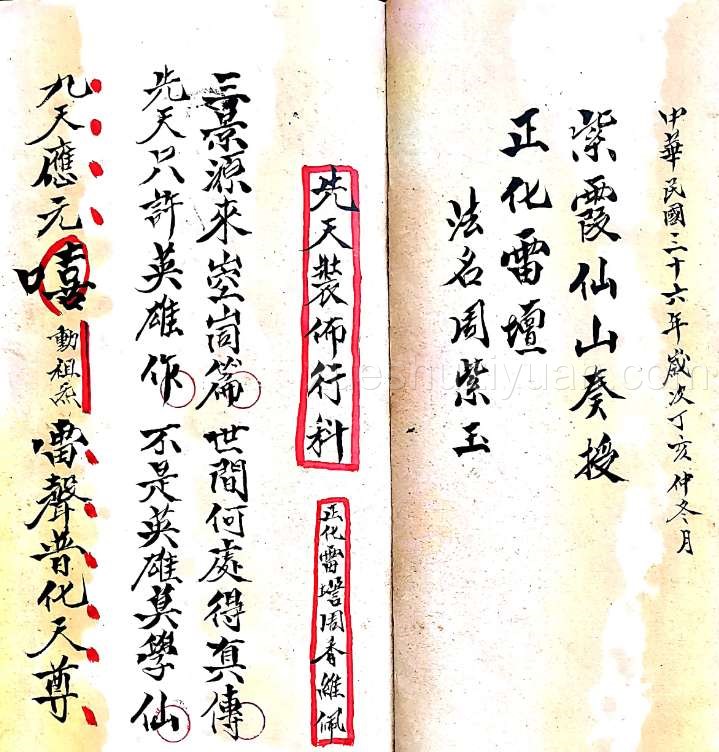 中華民國三十六年歲次丁亥仲冬月
紫霞仙山奏授
正化雷壇
法名周紫玉
先天裝佈行科
正化雷壇周香維佩
三景源來崆峒篇 世間何處得真傳
先天只許英雄作 不是英雄莫學仙
九天應元 嘻 動祖炁 雷聲普化天尊